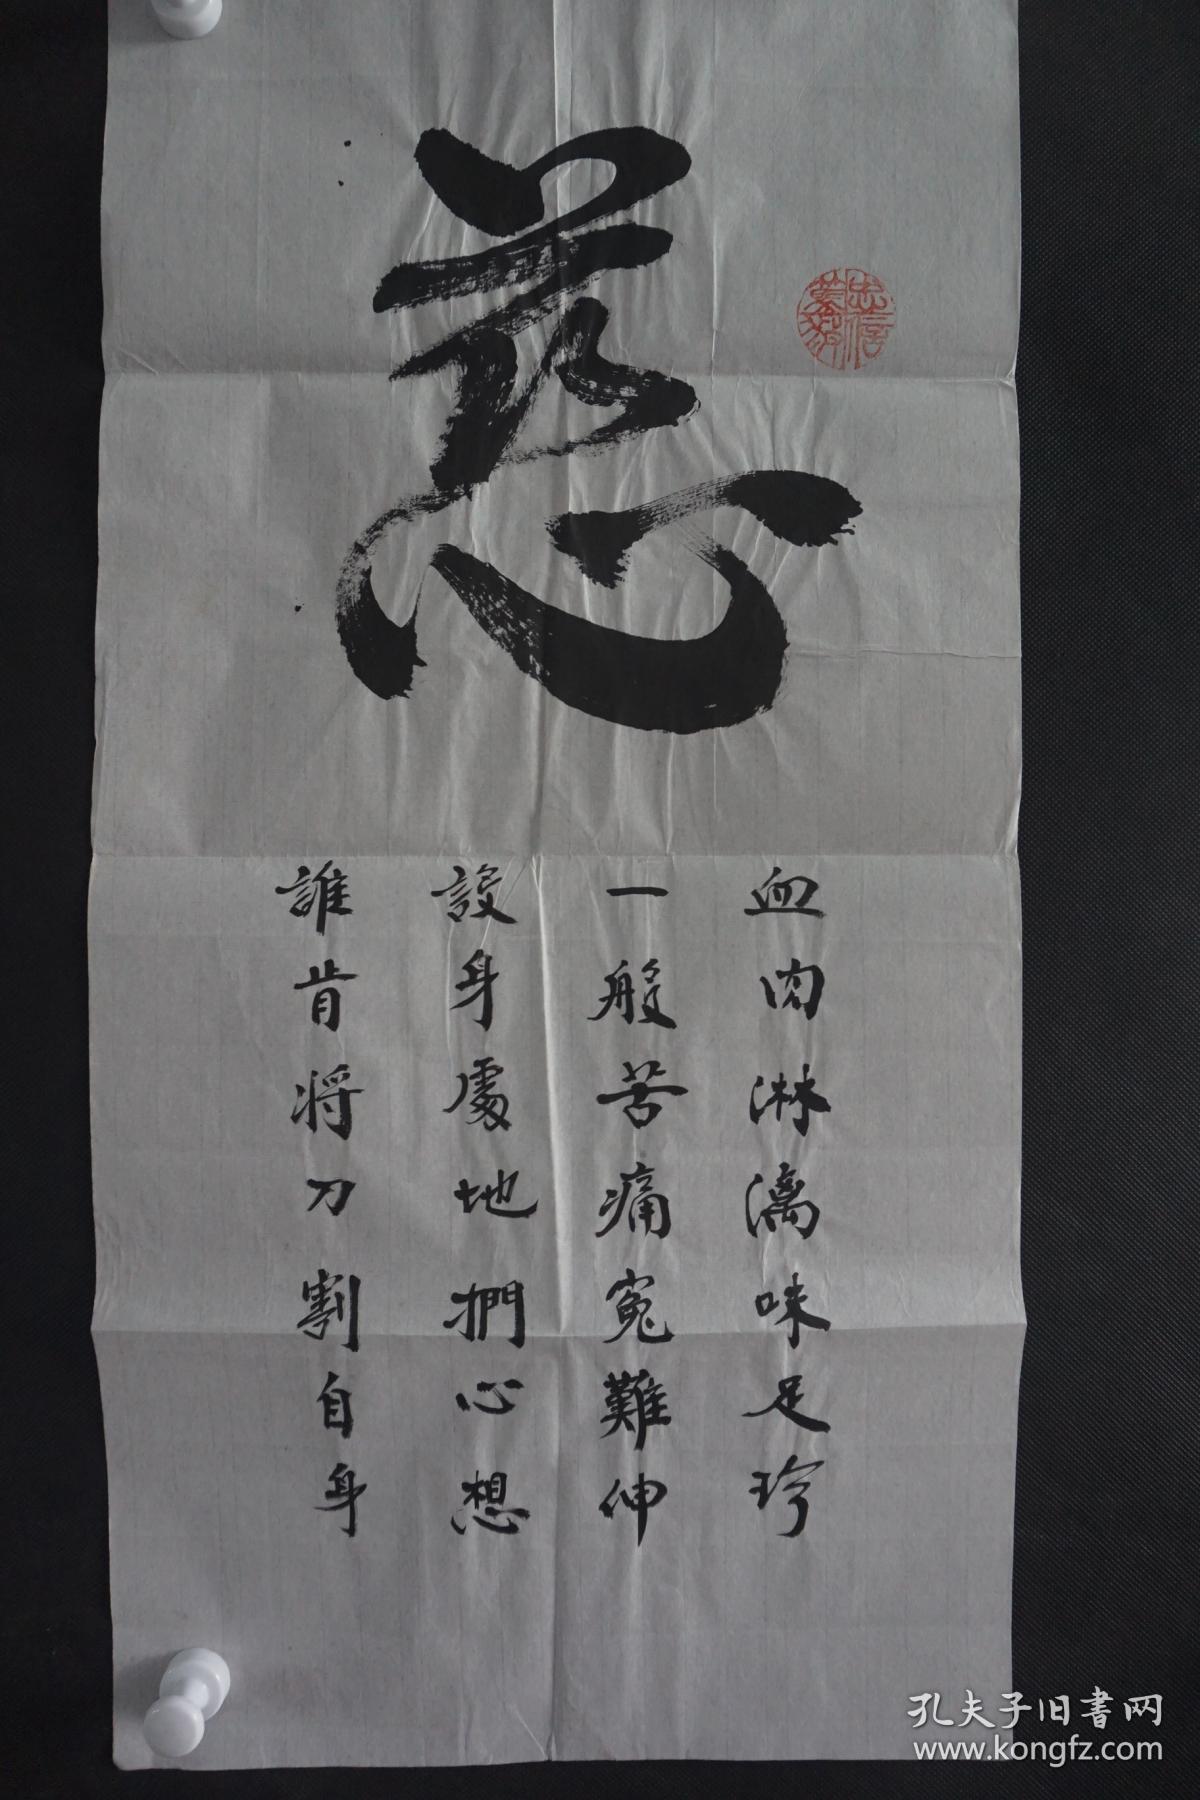 慈
忠信篤敬
血肉淋漓味足珍
一般苦痛冤難伸
設身處地捫心想
誰肯將刀割自身
孔夫子旧書网
www.kongfz.com